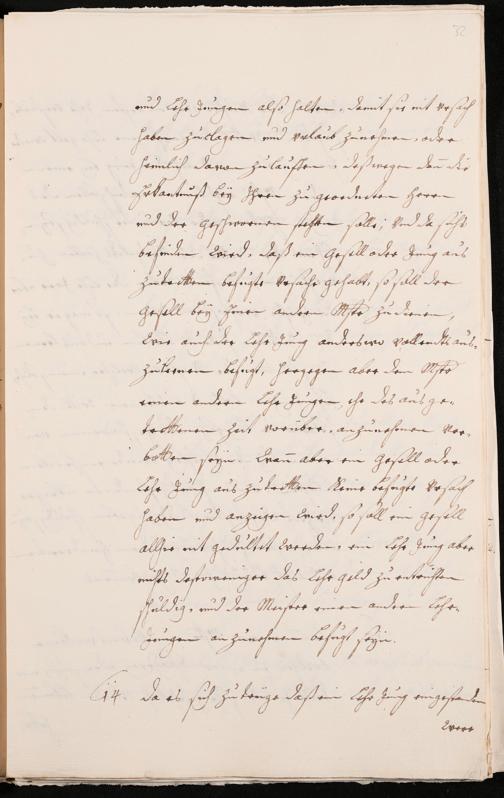 32
und Lehr Jungen also halten, damit sie nit ursach
haben zuclagen und urlaub zunehmen, oder
heimlich davon zulauffen, deßwegen dann die
Erkantnuß bey Ihren zugeordneten Herren
und der Geschwornen stehen solle, und da sichs
befinden wird, daß ein Gesell oder Jung aus
zutretten befugte ursache gehabt, so soll der
Gesell bey einem andern Mstr zudienen,
wie auch der Lehr Jung anderswo vollendts aus-
zulernen befugt, hergegen aber dem Mstr
einen andern Lehr Jungen ehe des ausge-
trettenen Zeit vorüber, anzunehmen ver-
botten seyn. Wann aber ein Gesell oder
Lehr Jung auszutretten keine befugte ursach
haben und anzeigen wird, so soll ein Gesell
allhie nit gedultet werden, ein Lehr Jung aber
nichts destoweniger das Lehr geld zu entrichten
schuldig, und der Meister einen andern Lehr-
Jungen anzunehmen befugt seyn.
14. da es sich zutrüge daß ein Lehr Jung eingestanden
were